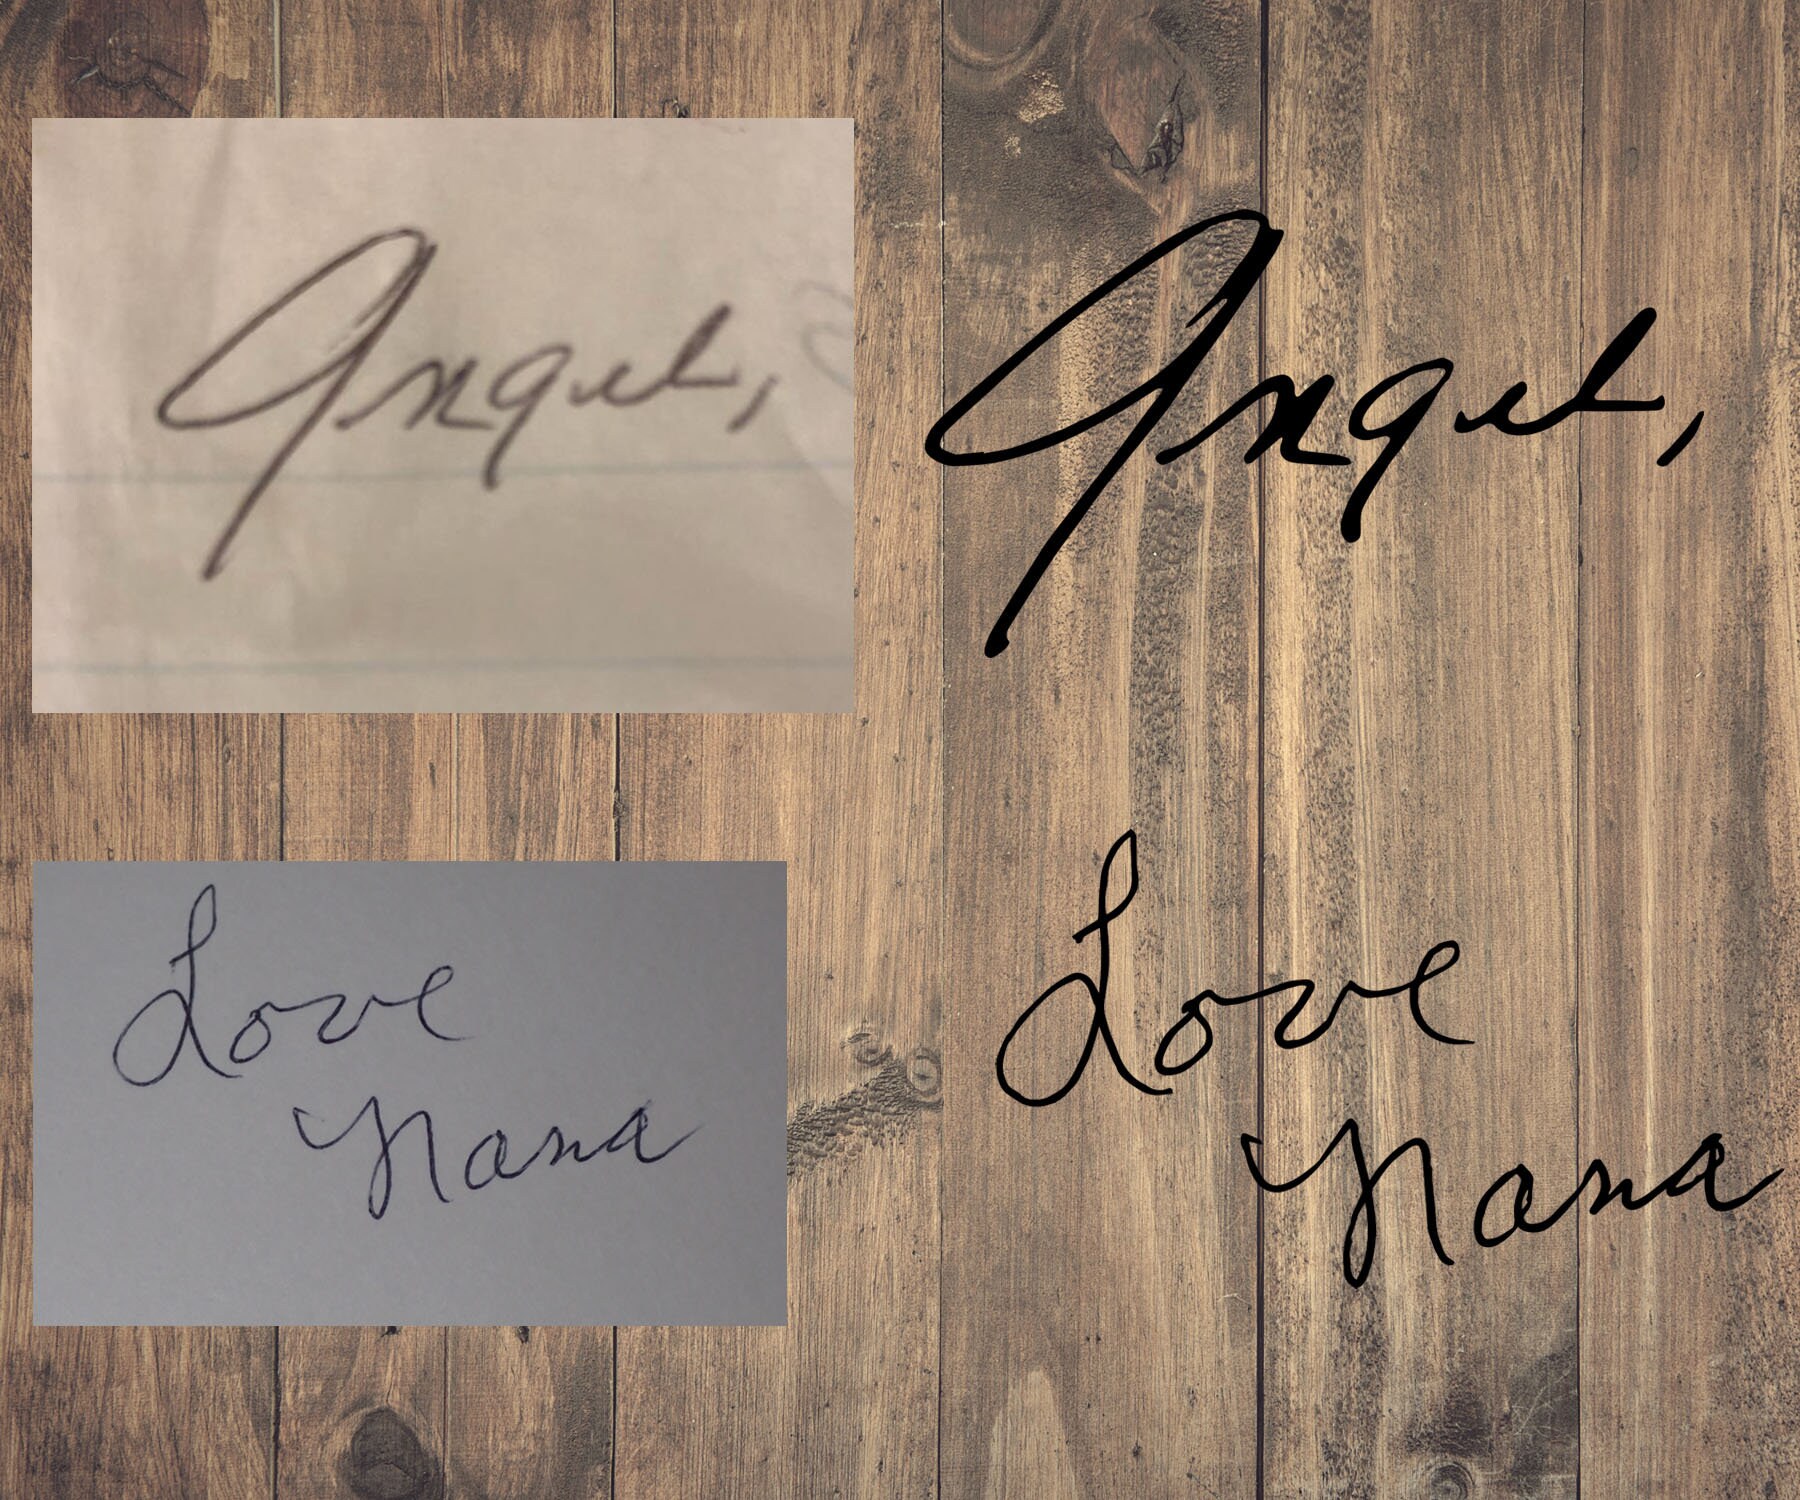 Angel,
Angel,
Love
Nana
Love
Nana